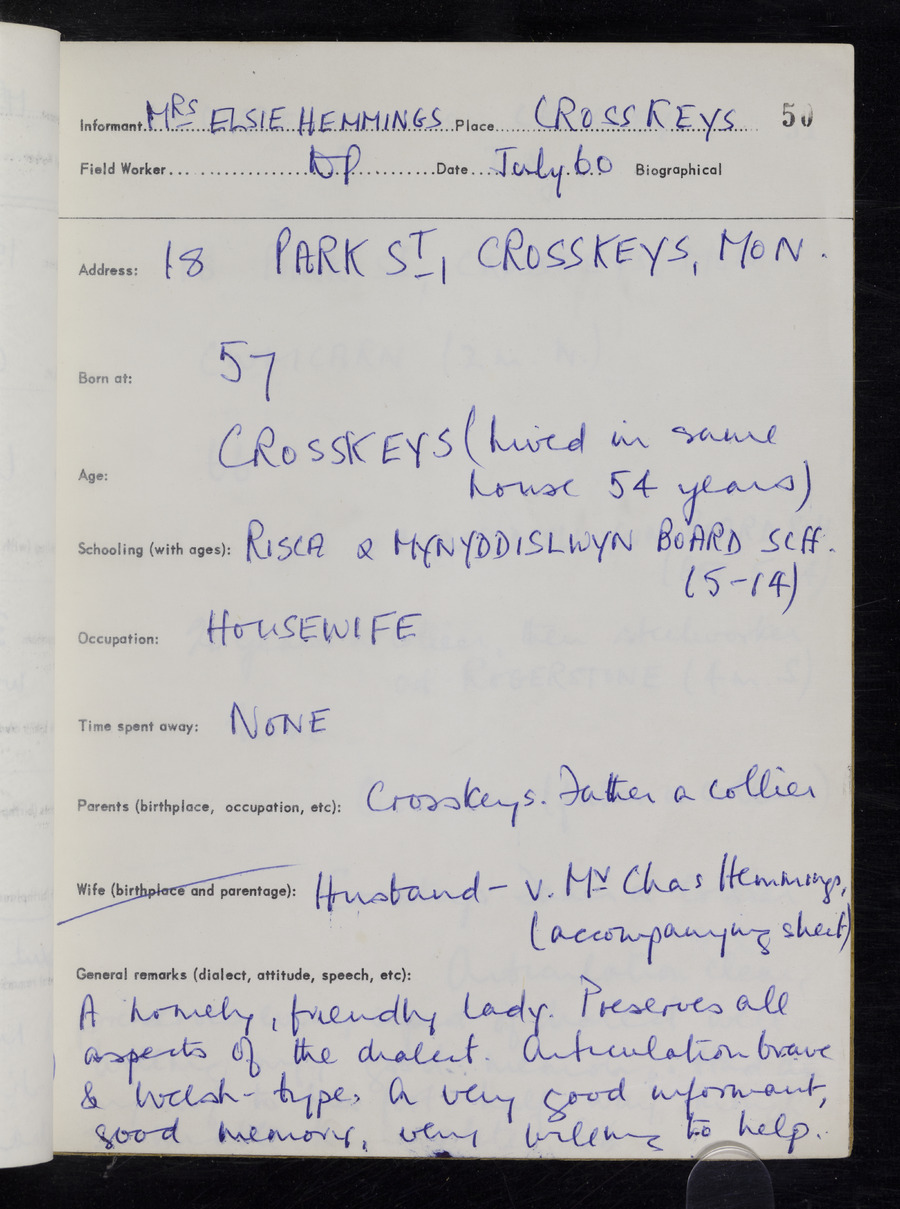 Informant MRS ELSIE HEMMINGS Place CROSSKEYS 50
Field Worker DP Date July 60 Biographical
Address: 18 PARK ST, CROSSKEYS, MON.
Born at: 57
Age: CROSSKEYS (lived in same
house 54 years)
Schooling (with ages): RISCA & MYNYDDISLWYN BOARD SCH.
(5-14)
Occupation: HOUSEWIFE
Time spent away: NONE
Parents (birthplace, occupation, etc): Crosskeys. Father a collier
Wife (birthplace and parentage): Husband - v. Mr Chas Hemmings,
(accompanying sheet)
General remarks (dialect, attitude, speech, etc):
A homely, friendly lady. Preserves all
aspects of the dialect. Articulation
& Welsh-type. A very good informant,
good memory, very willing to help.